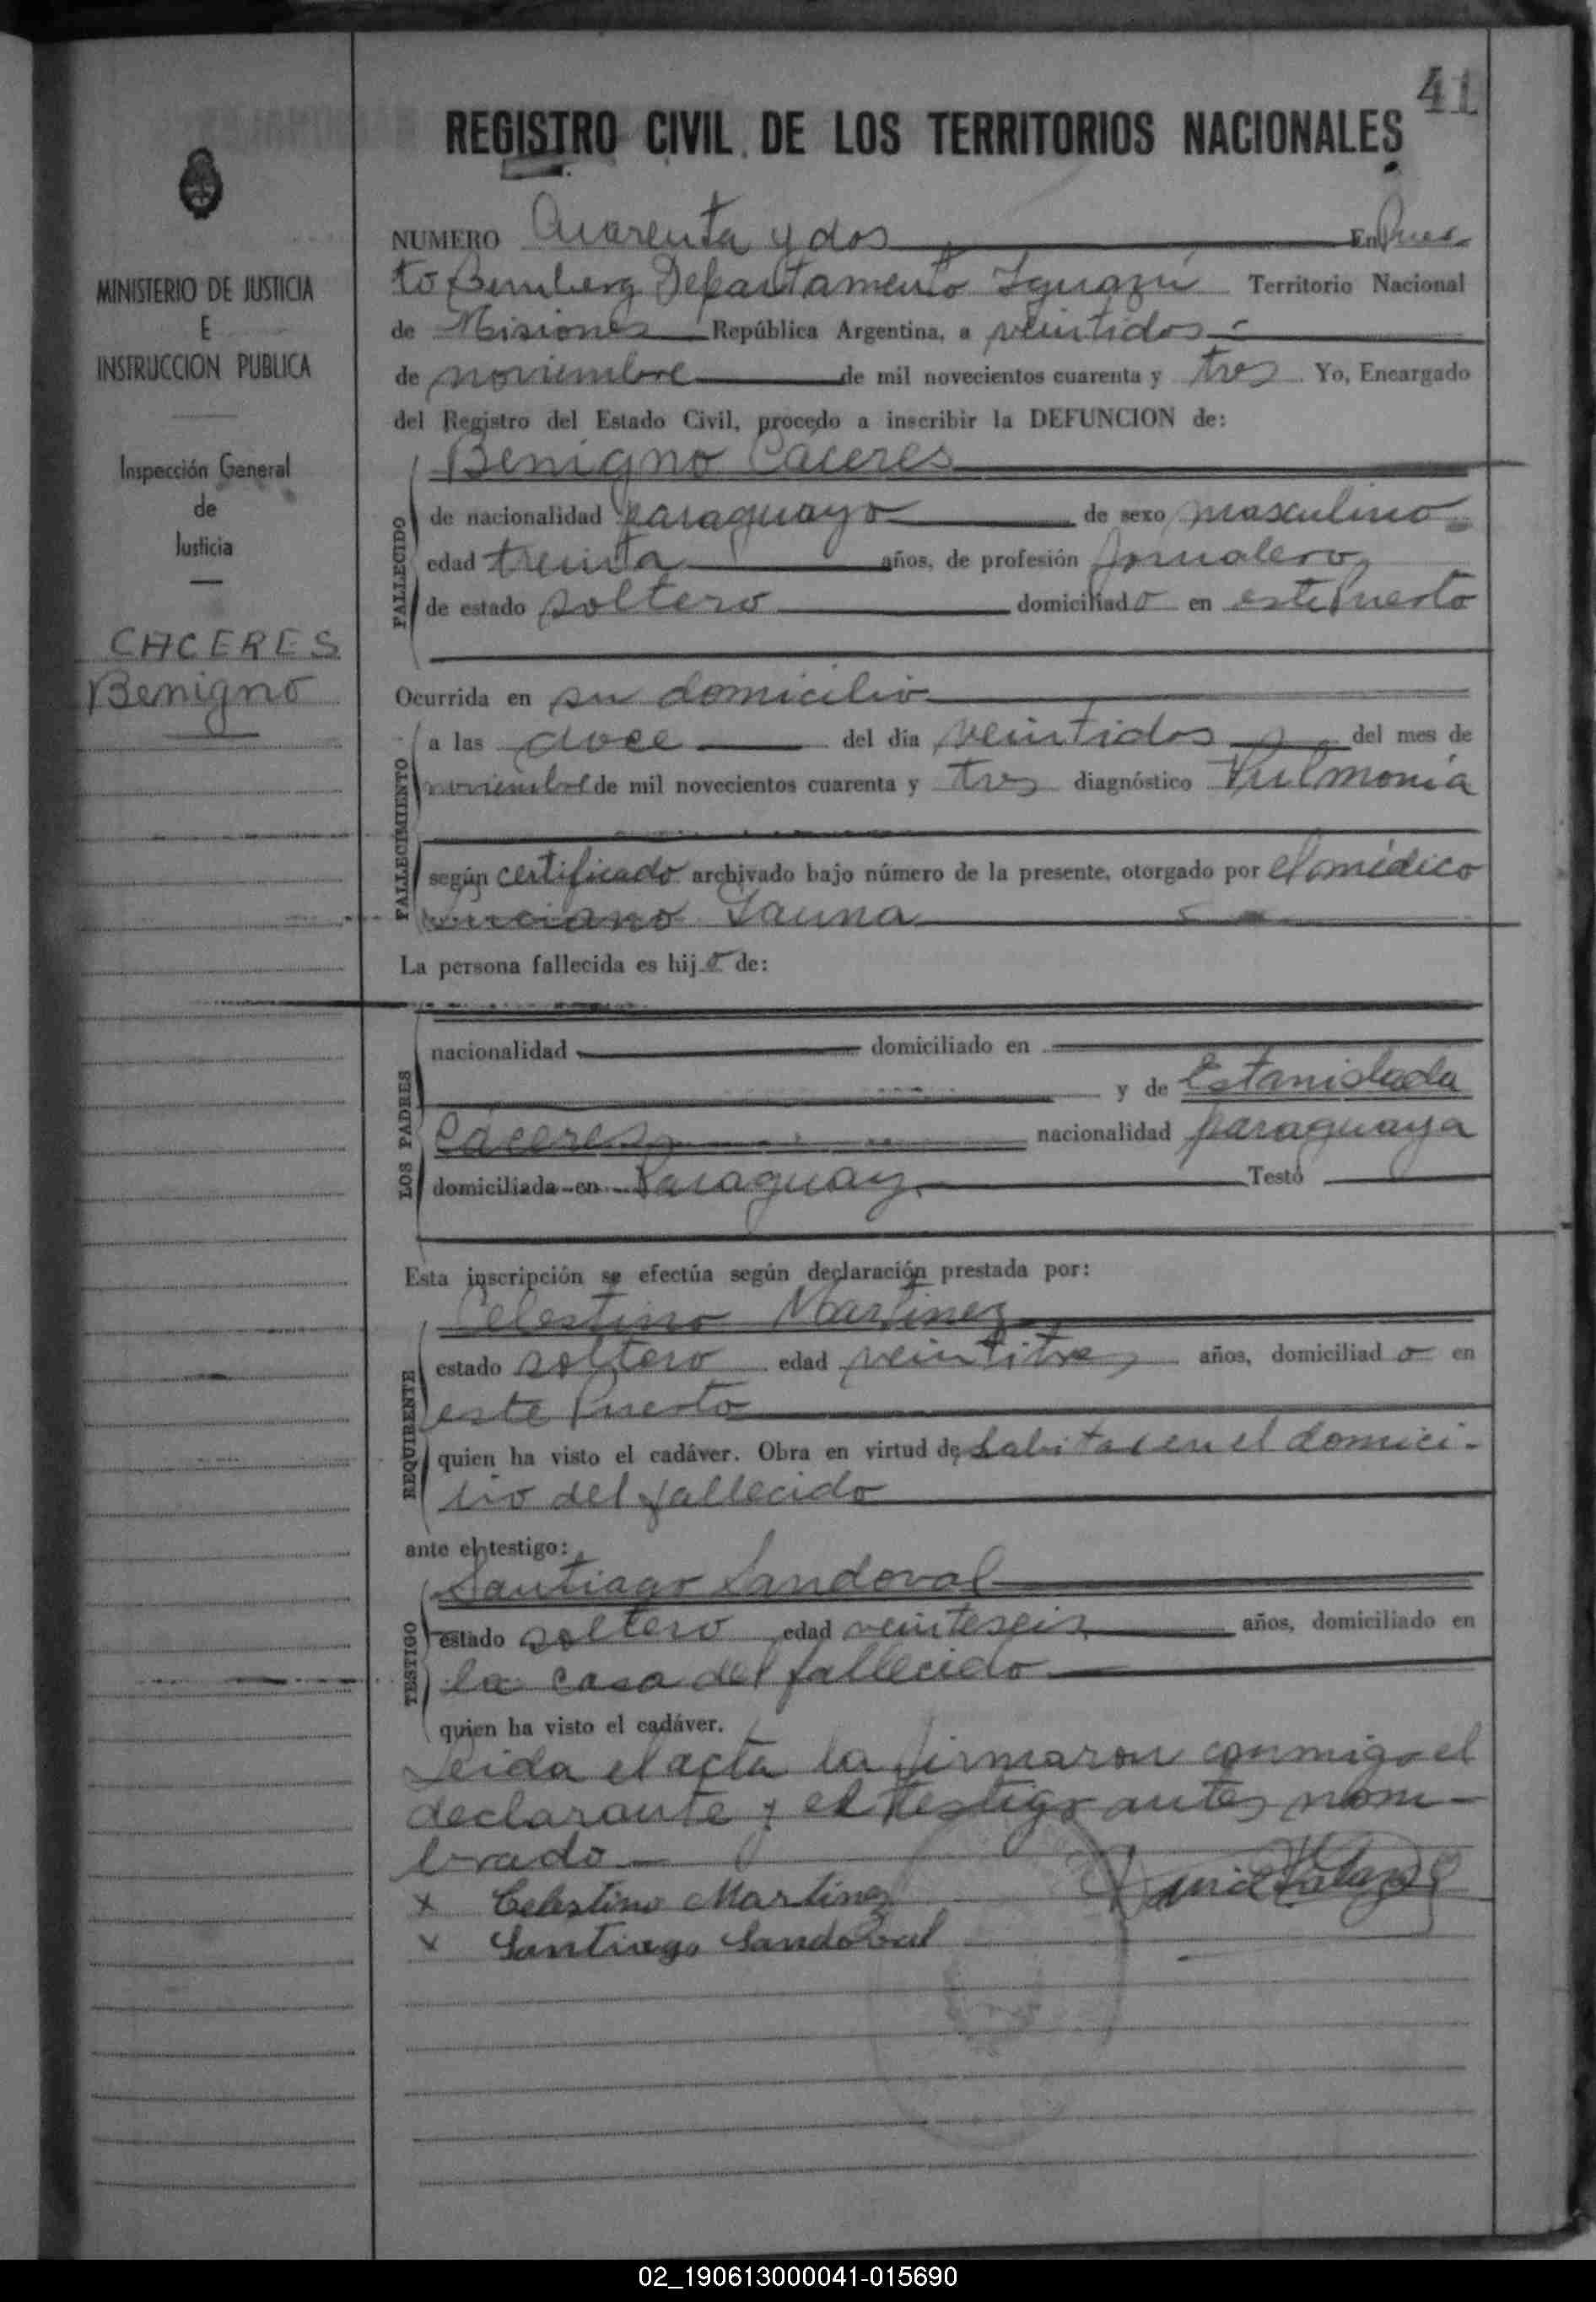 41
REGISTRO CIVIL DE LOS TERRITORIOS NACIONALES
MINISTERIO DE JUSTICIA
E
INSTRUCCION PUBLICA
Inspección General
de
Justicia
CACERES
Benigno
NUMERO Cuarenta y dos En Puer
to Bemberg Departamento Iguazú Territorio Nacional
de Misiones República Argentina, a veintidos
de noviembre de mil novecientos cuarenta y tres Yo, Encargado
del Registro del Estado Civil, procedo a inscribir la DEFUNCION de:
Benigno Caceres
FALLECIDO
de nacionalidad paraguayo de sexo masculino
edad treinta años, de profesión Jornalero
de estado soltero domiciliado en este Puerto
Ocurrida en su domicilio
FALLECIMIENTO
a las doce del día veintidos del mes de
noviembre de mil novecientos cuarenta y tres diagnóstico Pulmonía
según certificado archivado bajo número de la presente, otorgado por el médico
La persona fallecida es hijo de:
LOS PADRES
nacionalidad domiciliado en
y de Estanislada
Cáceres nacionalidad paraguaya
domiciliada en Paraguay Testó
Esta inscripción se efectúa según declaración prestada por:
Celestino Martinez
REQUIRENTE
estado soltero edad veintitres años, domiciliado en
este Puerto
quien ha visto el cadáver. Obra en virtud de habitar en el domici-
lio del fallecido
ante el testigo:
Santiago Sandoval
TESTIGO
estado soltero edad veinteseis años, domiciliado en
la casa del fallecido
quien ha visto el cadáver.
Leida el acta la firmaron conmigo el
declarante y el testigo antes nom-
brado
x Celestino Martinez
x Santiago Sandoval
02_190613000041-015690